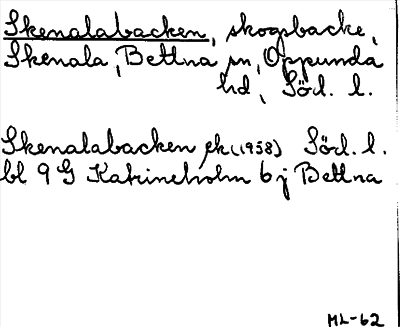 Skenalabacken, skogsbacke,
Skenala, Bettna sn, Oppunda
hd, Söd. l.
Skenalabacken ek (1958) Söd. l.
bl 9 G Katrineholm 6 j Bettna
ML-62